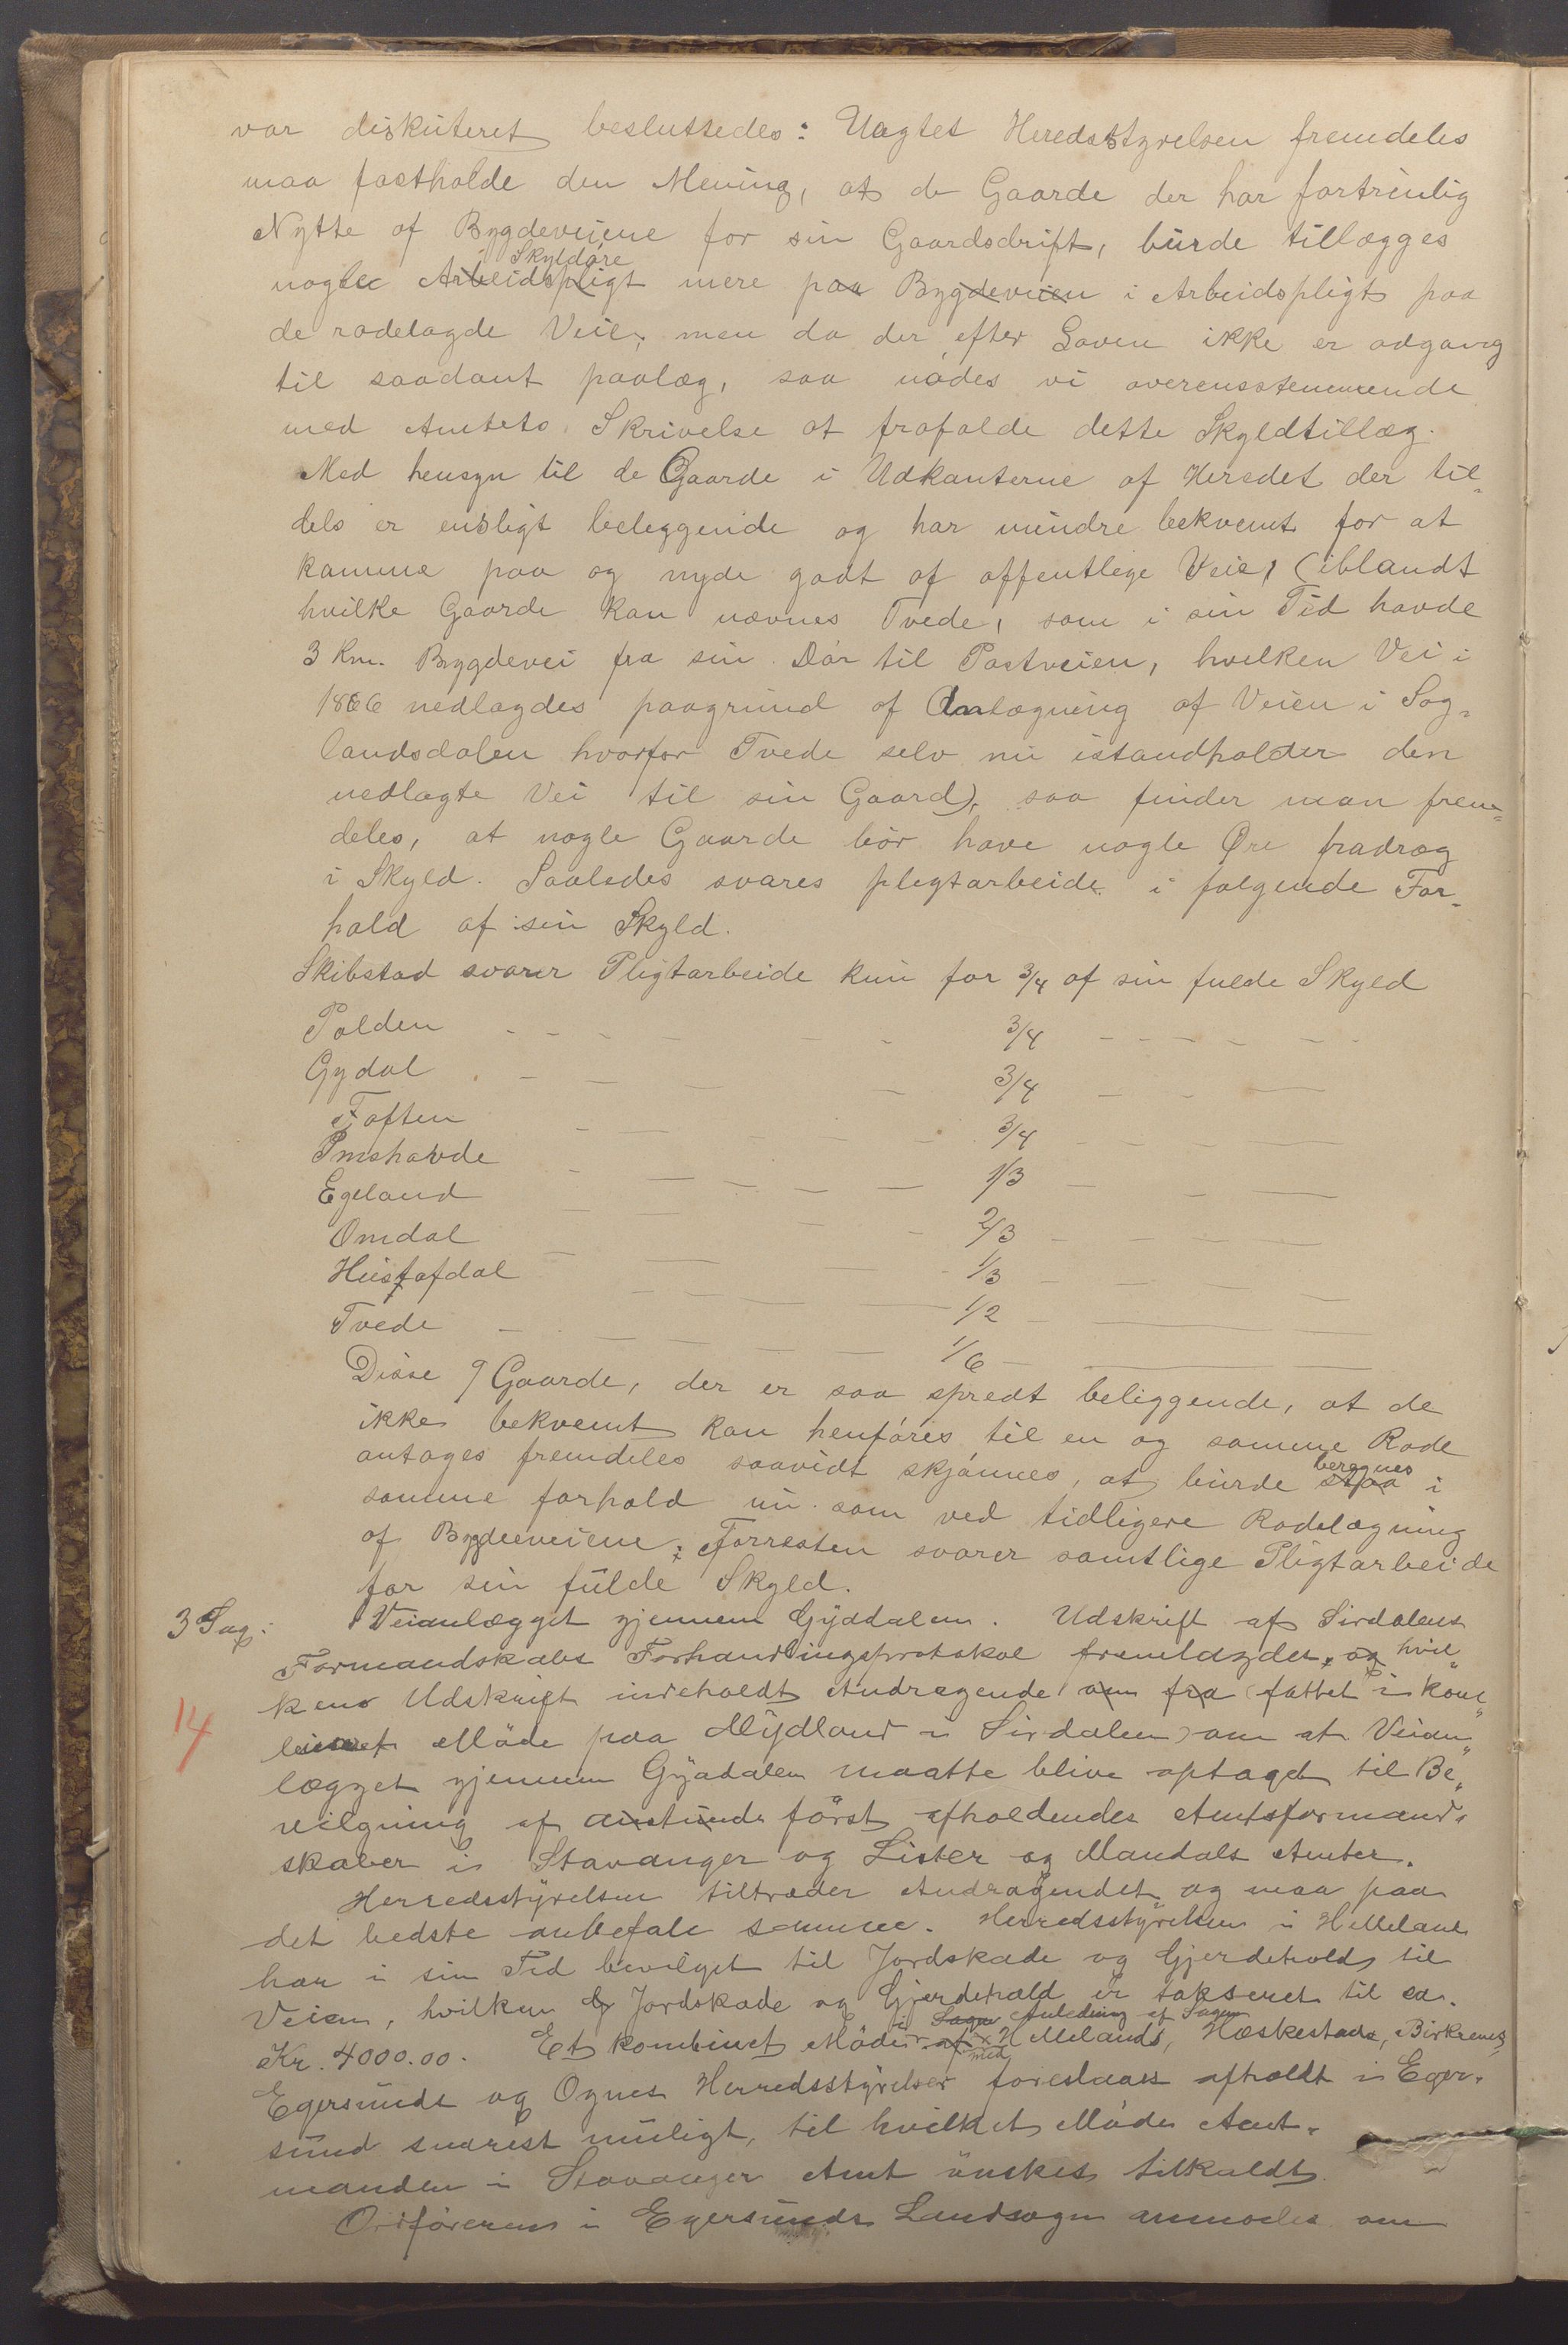 var diskuteret besluttedes: Uagtet Heredsstyrelsen fremdeles
maa fastholde den Mening, at de Gaarde der har fortrinlig
Nytte af Bygdeveiene for sin Gaardsdrift, burde tillægges
Skyldøre
nogle Arbeidspligt mere paa Bygdeveien i Arbeidspligt paa
de rodelagde Veie; men da der efter Loven ikke er adgang
til saadant paalæg, saa nødes vi overensstemmende
med Amtets Skrivelse at frafalde dette Skyldtillæg.
Med hensyn til de Gaarde i Udkanterne af Heredet der til-
dels er ensligt beleggende og har mindre bekvemt for at
komme paa og nyde godt af offentlige Veie, (iblandt
hvilke Gaarde kan nævnes Tvede, som i sin Tid havde
3 Km. Bygdevei fra sin Dør til Postveien, hvilken Vei i
1866 nedlagdes paagrund af Anlægning af Veien i Sog-
landsdalen hvorfor Tvede selv nu istandholder den
nedlagte Vei til sin Gaard), saa finder man frem-
deles, at nogle Gaarde bør have nogle Øre fradrag
i Skyld. Saaledes svares pligtarbeide i følgende For-
hold af sin Skyld.
Skibstad svarer Pligtarbeide kun for 3/4 af sin fulde Skyld
Polden - - - - - - 3/4 - - - - - -
Gydal - - - - 3/4 - - -
Toften - - - - - 3/4 - - - -
Imshovde - - - - - 1/3 - - -
Egeland - - - - - 2/3 - - -
Omdal - - - - 1/3 - - - -
Hustofdal - - - - - 1/2 - -
Tvede - - - - - 1/6 - -
Disse 9 Gaarde, der er saa spredt beliggende, at de
ikke bekvemt kan henføres til en og samme Rode
antages fremdeles saavidt skjønnes, at burde staa i
beregnes
samme forhold nu som ved tidligere Rodelægning
af Bygdeveiene; Forresten svarer samtlige Pligtarbeide
for sin fulde Skyld.
3 Sag: Veianlægget gjennem Gyadalen. Udskrift af Sirdalens
Formandskabs Forhandlingsprotokol fremlagdes, og hvil„
kens Udskrift indeholdt Andragende om fra (fattet i kom„
14
binet Møde paa Mydland i Sirdalen) om at Veian„
lægget gjennem Gyadalen maatte blive optaget til Be„
vilgning af først afholdendes Amtsformand„
skaber i Stavanger og Lister og Mandals Amter.
Herredsstyrelsen tiltræder Andragendet og maa paa
det bedste anbefale samme. Herredsstyrelsen i Helleland
har i sin Tid bevilget til Jordskade og Gjerdehold til
Veien, hvilken Jordskade og Gjerdehold er takseret til ca.
i Sagen Anledning af Sagen
Kr. 4000.00. Et kombinet Møde af Hellelands, Hæskestads, Birkrems,
med
Egersunds og Ognes Herredsstyrelser foreslaaes afholdt i Eger„
sund snarest muligt, til hvilket Møde Amt„
manden i Stavanger Amt ønskes tilkaldt.
Ordføreren i Egersunds Landsogn anmodes om